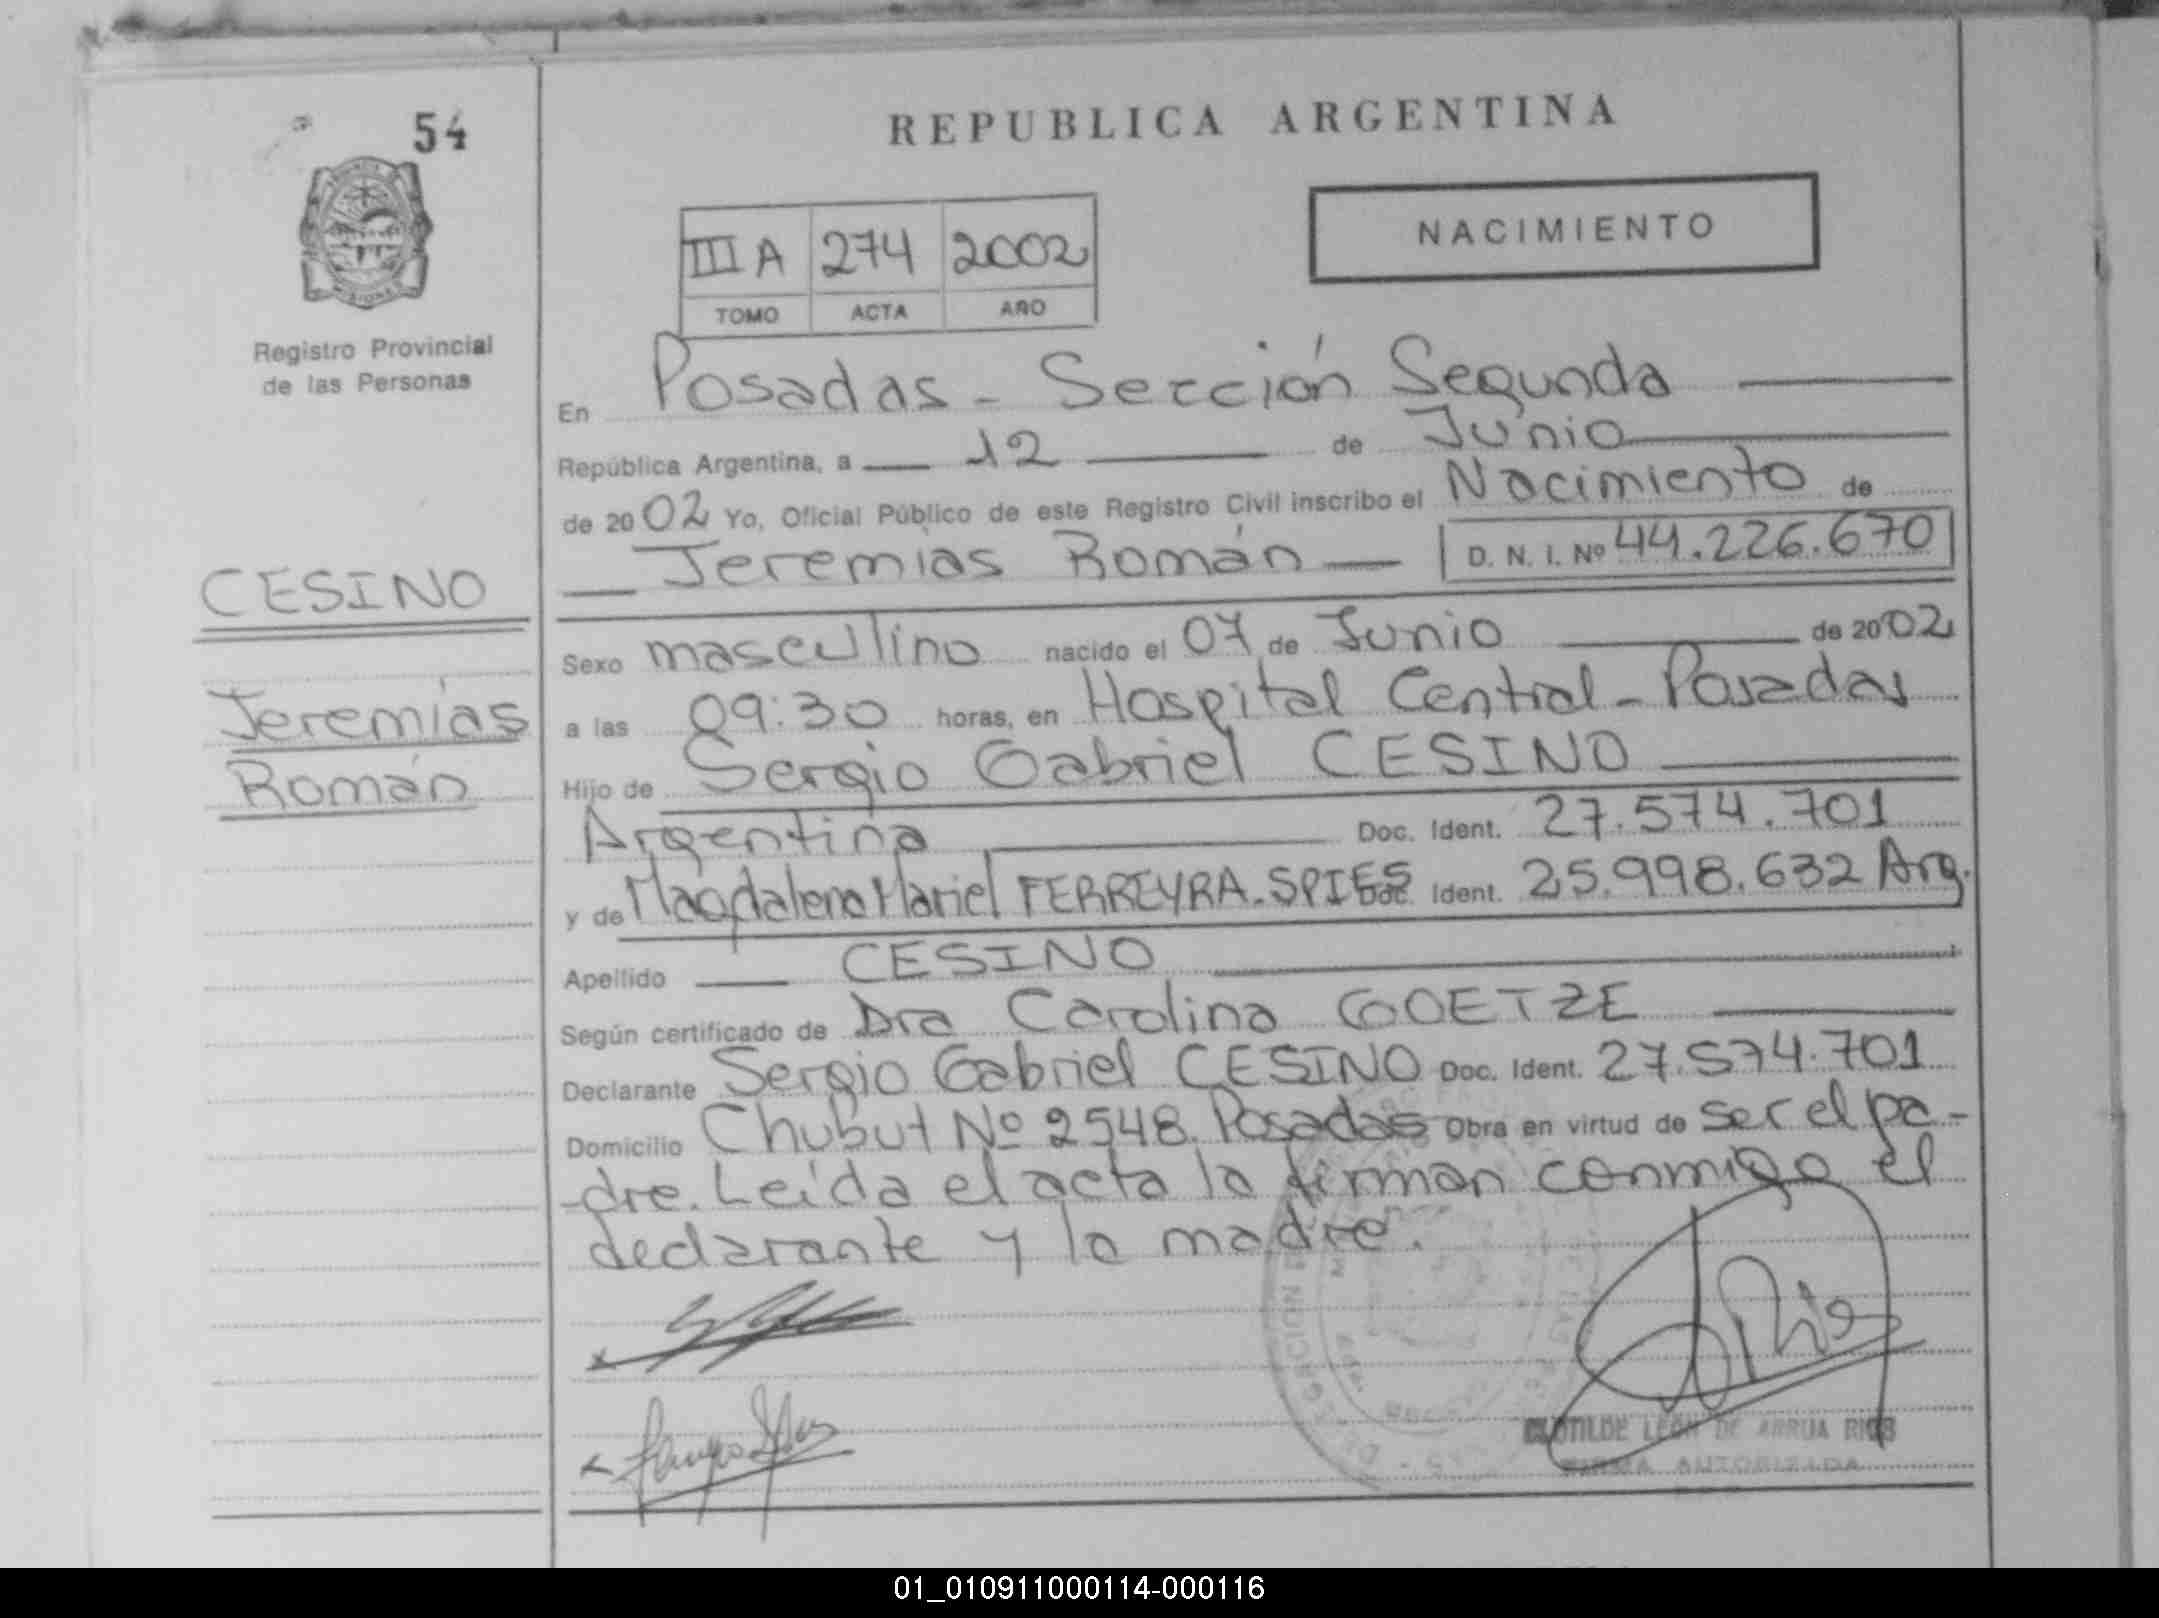 54
REPUBLICA ARGENTINA
NACIMIENTO
III A 274 2002
TOMO ACTA AÑO
Registro Provincial
de las Personas
En Posadas - Sección Segunda
República Argentina, a 12 de Junio
de 2002 Yo, Oficial Público de este Registro Civil inscribo el Nacimiento de
Jeremías Román D. N. I. Nº 44.226.670
CESINO
Jeremías
Román
Sexo masculino nacido el 07 de Junio de 2002
a las 09:30 horas, en Hospital Central - Posadas
Hijo de Sergio Gabriel CESINO
Argentina Doc. Ident. 27.574.701
y de Magdalena Mariel FERREYRA.SPIES Doc. Ident. 25.998.632 Arg.
Apellido CESINO
Según certificado de Dra Carolina GOETZE
Declarante Sergio Gabriel CESINO Doc. Ident. 27.574.701
Domicilio Chubut Nº 2548. Posadas Obra en virtud de ser el pa-
-dre. Leída el acta la firman conmigo el
declarante y la madre.
CLOTILDE LEON DE ARRUA RIOS
FIRMA AUTORIZADA
01_010911000114-000116